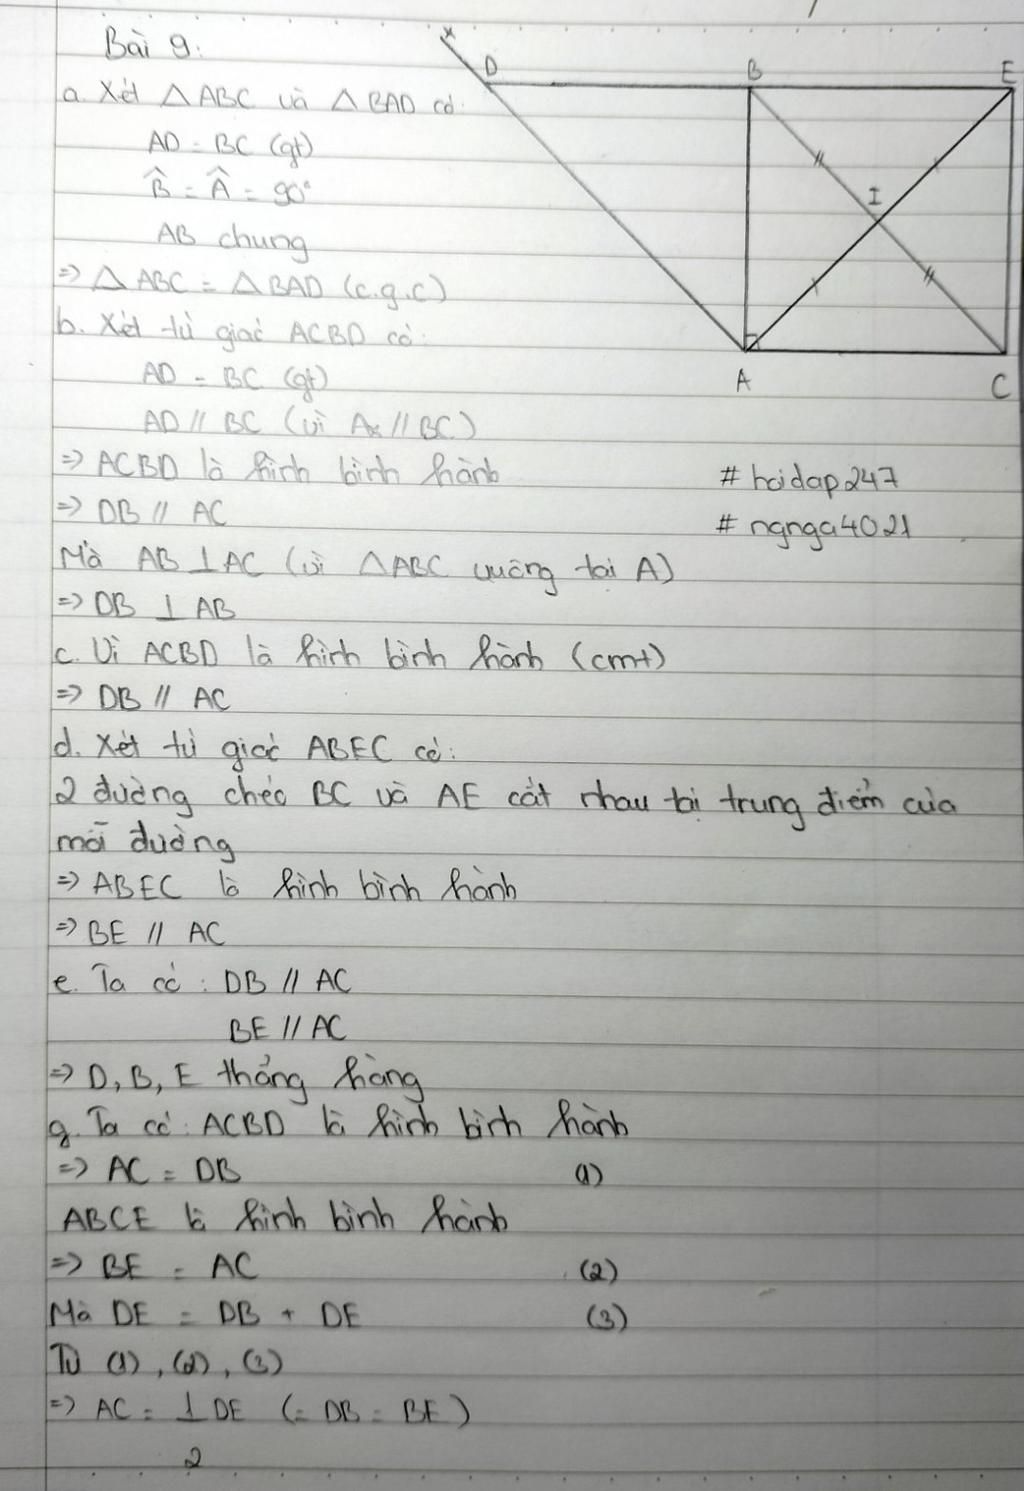 Bài 9:
a. Xét △ABC và △BAD có:
AD = BC (gt)
B̂ = Â = 90°
AB chung
=> △ABC = △BAD (c.g.c)
b. Xét tứ giác ACBD có:
AD = BC (gt)
AD // BC (vì Ax // BC)
=> ACBD là hình bình hành
=> DB // AC
Mà AB ⊥ AC (vì △ABC vuông tại A)
=> DB ⊥ AB
c. Vì ACBD là hình bình hành (cmt)
=> DB // AC
d. Xét tứ giác ABEC có:
2 đường chéo BC và AE cắt nhau tại trung điểm của
mỗi đường
=> ABEC là hình bình hành
=> BE // AC
e. Ta có: DB // AC
BE // AC
=> D, B, E thẳng hàng
g. Ta có: ACBD là hình bình hành
=> AC = DB (1)
ABCE là hình bình hành
=> BE = AC (2)
Mà DE = DB + DE (3)
Từ (1), (2), (3)
=> AC = 1/2 DE (= DB = BE)
x
D B E
I
A C
# hoidap247
# ngnga4021